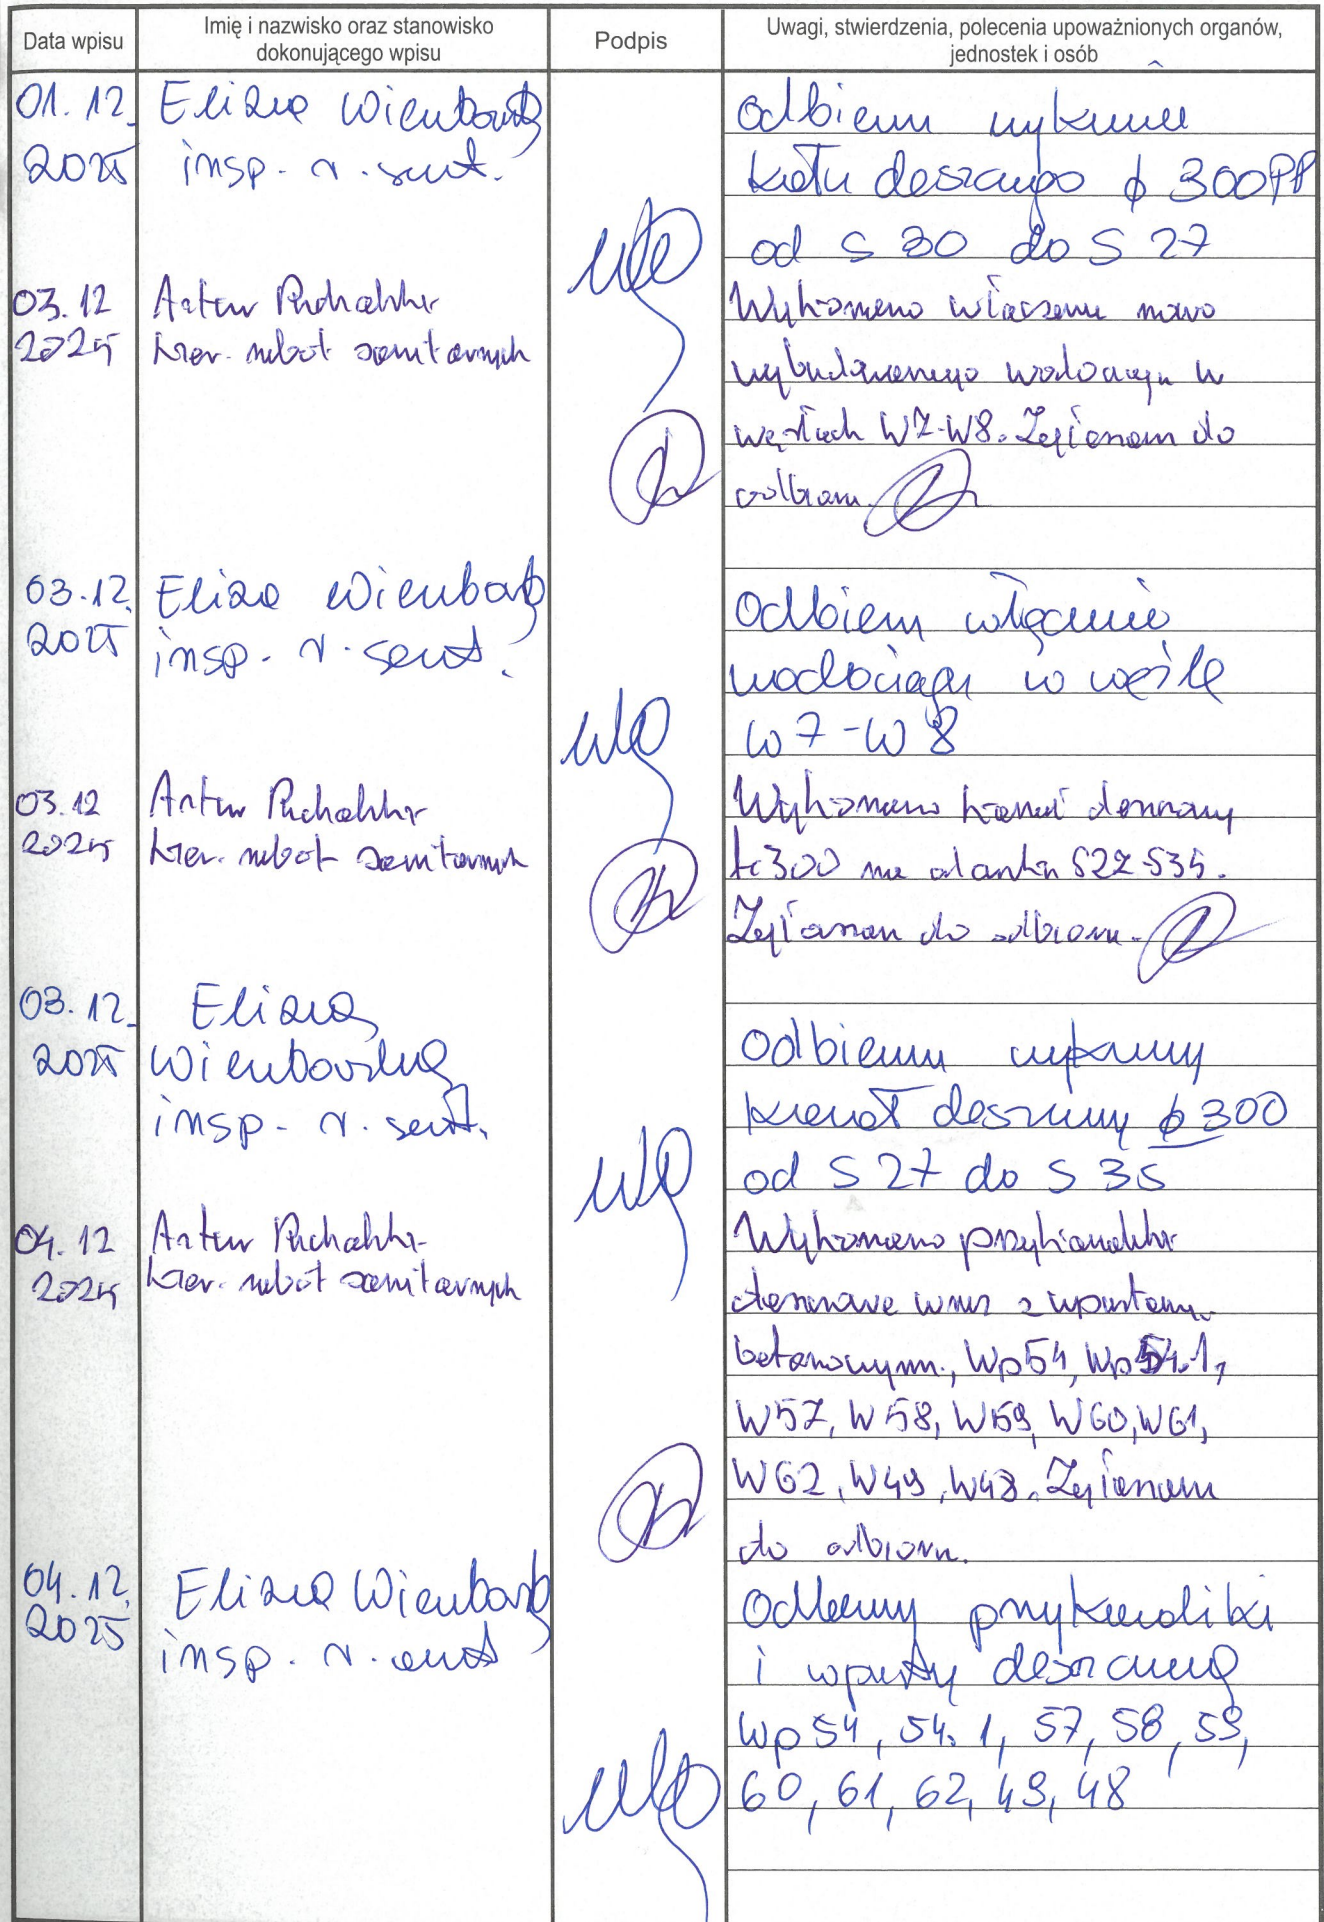 Data wpisu
Imię i nazwisko oraz stanowisko
dokonującego wpisu
Podpis
Uwagi, stwierdzenia, polecenia upoważnionych organów,
jednostek i osób
01.12.
2025
Eliza
insp. n. sanit.
Odbieram
deszczowego ϕ 300PP
od S 30 do S 27
03.12
2025
Artur Puchalski
kier. robót sanitarnych
Wykonano włączenie nowo
wybudowanego wodociągu w
węzłach W7-W8. Zgłaszam do
odbioru.
03.12.
2025
Eliza
insp. n. sanit.
Odbieram włączenie
wodociągu w węźle
W7-W8
03.12
2025
Artur Puchalski
kier. robót sanitarnych
Wykonano kanał deszczowy
300 na odcinku S27-S35.
Zgłaszam do odbioru.
03.12.
2025
Eliza
insp. n. sanit.
Odbieram
kanał deszczowy ϕ 300
od S 27 do S 35
04.12
2025
Artur Puchalski
kier. robót sanitarnych
Wykonano przykanaliki
deszczowe wraz z wpustami
betonowymi, Wp54, Wp54.1,
W57, W58, W59, W60, W61,
W62, W49, W48. Zgłaszam
do odbioru.
04.12.
2025
Eliza
insp. n.
przykanaliki
i wpusty
Wp 54, 54.1, 57, 58, 59,
60, 61, 62, 49, 48